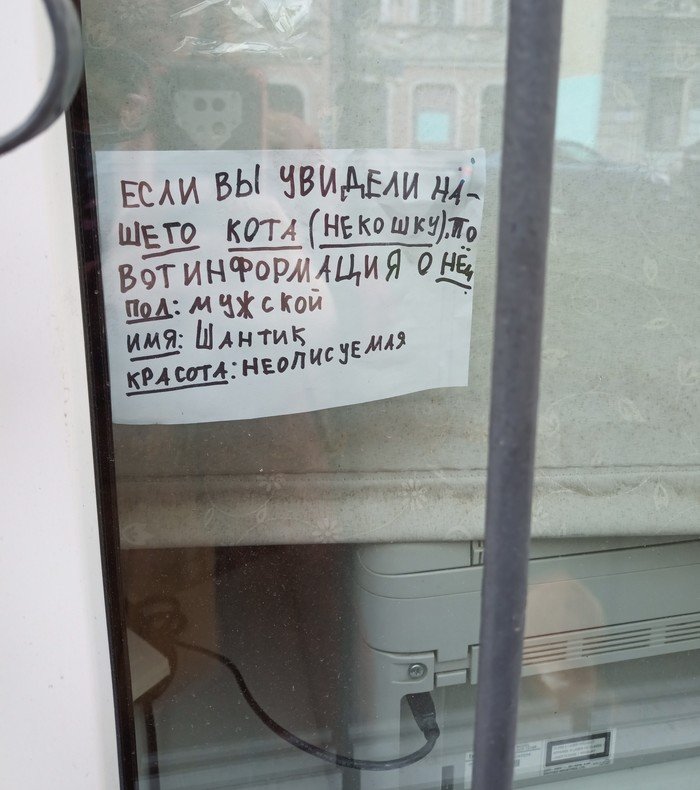 ЕСЛИ ВЫ УВИДЕЛИ НА-
ШЕГО КОТА (НЕКОШКУ). ТО
ВОТ ИНФОРМАЦИЯ О НЁМ
ПОЛ: МУЖСКОЙ
ИМЯ: ШАНТИК
КРАСОТА: НЕОПИСУЕМАЯ